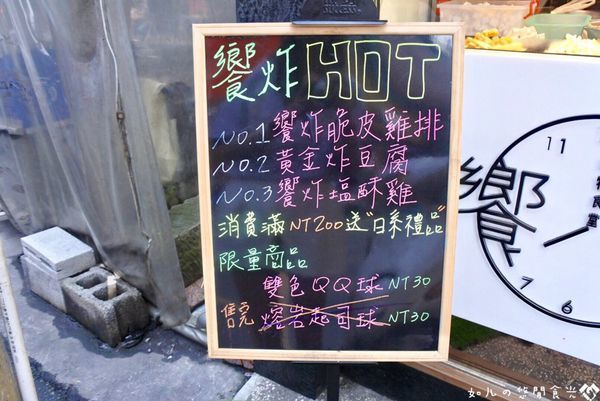 饗炸HOT
NO.1饗炸脆皮雞排
NO.2黃金炸豆腐
NO.3饗炸塩酥雞
消費滿NT200送"日系禮品"
限量商品
雙色QQ球 NT30
售完 熔岩起司球 NT30
饗
11
7
6
如儿の悠閒食光